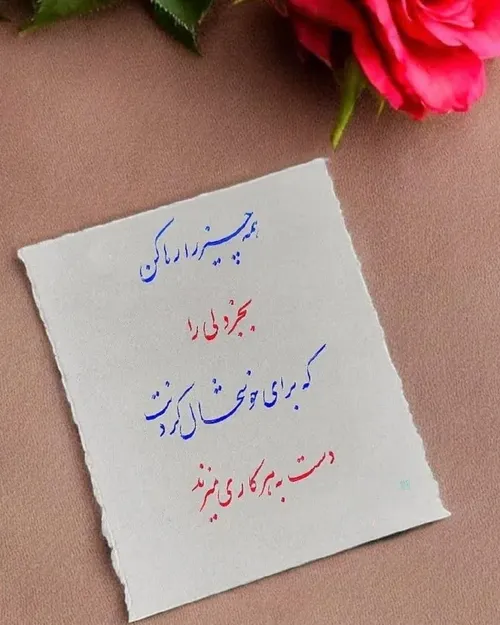 همه چیز را رها کن
بجز دلی را
که برای خوشحال کردنت
دست به هر کاری میزند